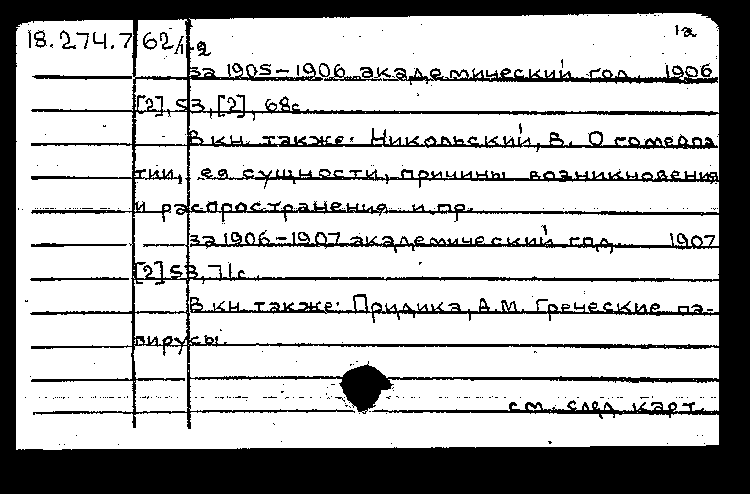 1а
18.274.7 62/1-2
за 1905-1906 академический год 1906
[2], 53, [2], 68с.
В кн. также: Никольский, В. О гомеопа
тии, ея сущности, причины возникновения
и распространения и пр.
за 1906-1907 академический год 1907
[2] 53, 71с.
В кн. также: Придика, А.М. Греческие па-
пирусы.
см. след. карт.